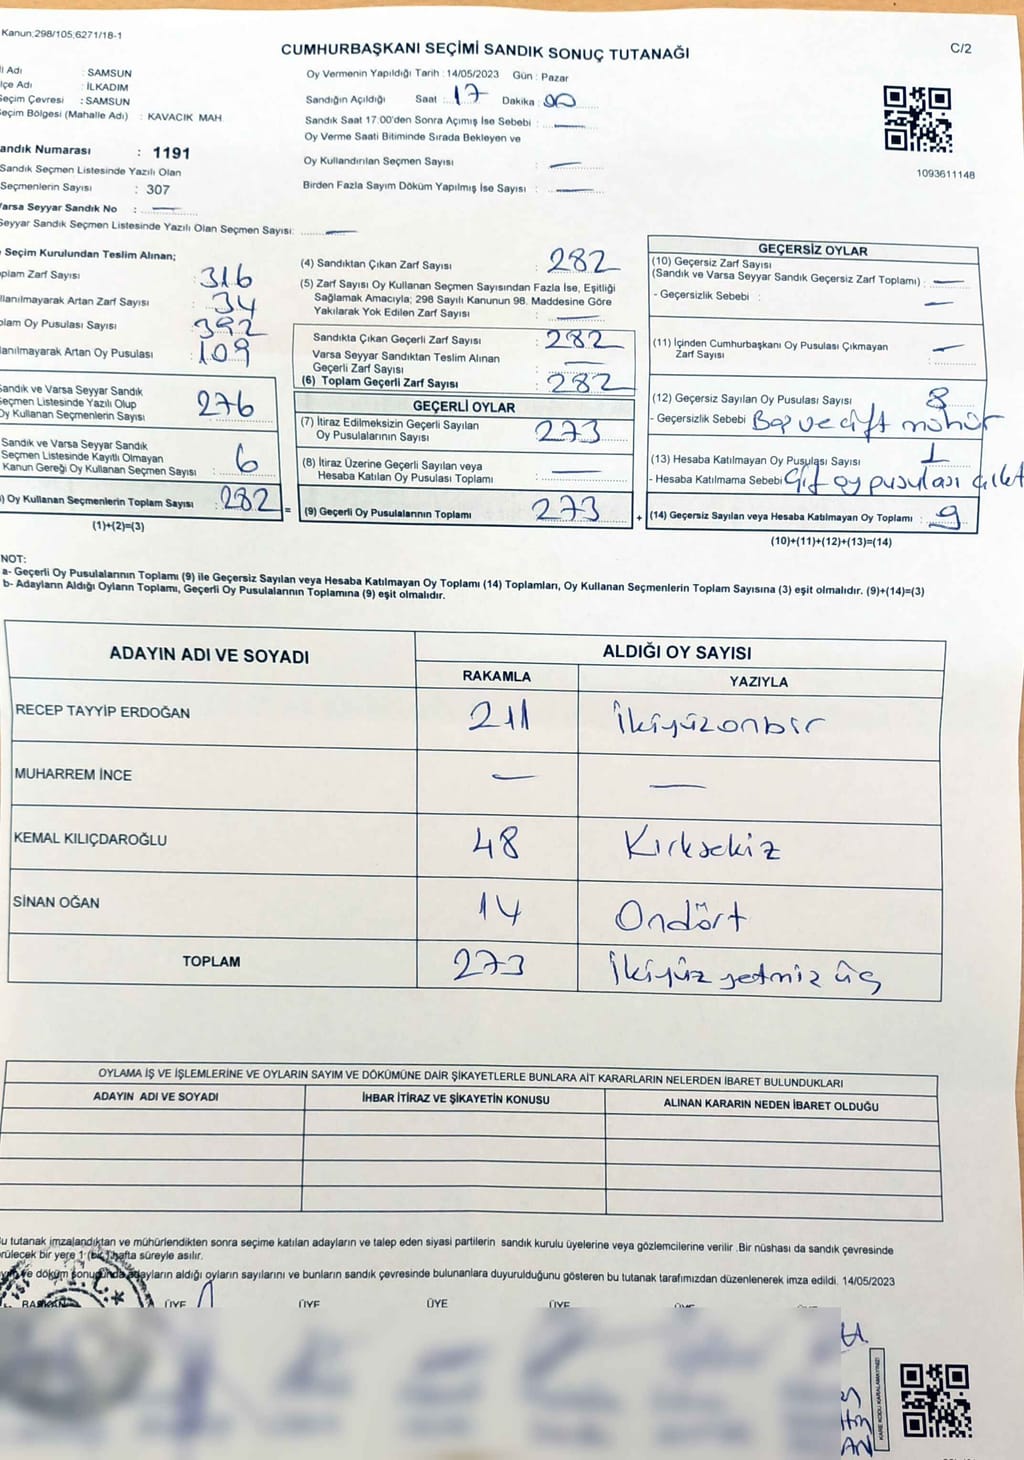 Kanun;298/105;6271/18-1
CUMHURBAŞKANI SEÇİMİ SANDIK SONUÇ TUTANAĞI
C/2
Adı : SAMSUN
Adı : İLKADIM
Seçim Çevresi : SAMSUN
Seçim Bölgesi (Mahalle Adı) : KAVACIK MAH
Sandık Numarası : 1191
Sandık Seçmen Listesinde Yazılı Olan
Seçmenlerin Sayısı : 307
Varsa Seyyar Sandık No : —
Seyyar Sandık Seçmen Listesinde Yazılı Olan Seçmen Sayısı: —
Oy Vermenin Yapıldığı Tarih : 14/05/2023 Gün : Pazar
Sandığın Açıldığı Saat : 17 Dakika : 00
Sandık Saat 17.00'den Sonra Açımış İse Sebebi : —
Oy Verme Saati Bitiminde Sırada Bekleyen ve
Oy Kullandırılan Seçmen Sayısı : —
Birden Fazla Sayım Döküm Yapılmış İse Sayısı : —
1093611148
Seçim Kurulundan Teslim Alınan;
Toplam Zarf Sayısı : 316
Kullanılmayarak Artan Zarf Sayısı : 34
Toplam Oy Pusulası Sayısı : 392
Kullanılmayarak Artan Oy Pusulası : 109
Sandık ve Varsa Seyyar Sandık
Seçmen Listesinde Yazılı Olup
Oy Kullanan Seçmenlerin Sayısı : 276
Sandık ve Varsa Seyyar Sandık
Seçmen Listesinde Kayıtlı Olmayan
Kanun Gereği Oy Kullanan Seçmen Sayısı : 6
) Oy Kullanan Seçmenlerin Toplam Sayısı : 282 =
(1)+(2)=(3)
(4) Sandıktan Çıkan Zarf Sayısı : 282
(5) Zarf Sayısı Oy Kullanan Seçmen Sayısından Fazla İse, Eşitliği
Sağlamak Amacıyla; 298 Sayılı Kanunun 98. Maddesine Göre
Yakılarak Yok Edilen Zarf Sayısı : —
Sandıkta Çıkan Geçerli Zarf Sayısı : 282
Varsa Seyyar Sandıktan Teslim Alınan
Geçerli Zarf Sayısı : —
(6) Toplam Geçerli Zarf Sayısı : 282
GEÇERLİ OYLAR
(7) İtiraz Edilmeksizin Geçerli Sayılan
Oy Pusulalarının Sayısı : 273
(8) İtiraz Üzerine Geçerli Sayılan veya
Hesaba Katılan Oy Pusulası Toplamı : —
(9) Geçerli Oy Pusulalarının Toplamı : 273 +
GEÇERSİZ OYLAR
(10) Geçersiz Zarf Sayısı
(Sandık ve Varsa Seyyar Sandık Geçersiz Zarf Toplamı) : —
- Geçersizlik Sebebi : —
(11) İçinden Cumhurbaşkanı Oy Pusulası Çıkmayan
Zarf Sayısı : —
(12) Geçersiz Sayılan Oy Pusulası Sayısı : 8
- Geçersizlik Sebebi : Boş ve çift mühür
(13) Hesaba Katılmayan Oy Pusulası Sayısı : 1
- Hesaba Katılmama Sebebi Çift oy pusulası
(14) Geçersiz Sayılan veya Hesaba Katılmayan Oy Toplamı : 9
(10)+(11)+(12)+(13)=(14)
NOT:
a- Geçerli Oy Pusulalarının Toplamı (9) ile Geçersiz Sayılan veya Hesaba Katılmayan Oy Toplamı (14) Toplamları, Oy Kullanan Seçmenlerin Toplam Sayısına (3) eşit olmalıdır. (9)+(14)=(3)
b- Adayların Aldığı Oyların Toplamı, Geçerli Oy Pusulalarının Toplamına (9) eşit olmalıdır.
ADAYIN ADI VE SOYADI ALDIĞI OY SAYISI
RAKAMLA YAZIYLA
RECEP TAYYİP ERDOĞAN 211 İkiyüzonbir
MUHARREM İNCE — —
KEMAL KILIÇDAROĞLU 48 Kırksekiz
SİNAN OĞAN 14 Ondört
TOPLAM 273 İkiyüz yetmiz üç
OYLAMA İŞ VE İŞLEMLERİNE VE OYLARIN SAYIM VE DÖKÜMÜNE DAİR ŞİKAYETLERLE BUNLARA AİT KARARLARIN NELERDEN İBARET BULUNDUKLARI
ADAYIN ADI VE SOYADI İHBAR İTİRAZ VE ŞİKAYETİN KONUSU ALINAN KARARIN NEDEN İBARET OLDUĞU
Bu tutanak imzalandıktan ve mühürlendikten sonra seçime katılan adayların ve talep eden siyasi partilerin sandık kurulu üyelerine veya gözlemcilerine verilir .Bir nüshası da sandık çevresinde
görülecek bir yere 1 (bir) hafta süreyle asılır.
ve döküm sonucunda adayların aldığı oyların sayılarını ve bunların sandık çevresinde bulunanlara duyurulduğunu gösteren bu tutanak tarafımızdan düzenlenerek imza edildi. 14/05/2023
BAŞKAN ÜYE ÜYE ÜYE ÜYE ÜYE ÜYE
KARE KODU KARALAMAYINIZ!